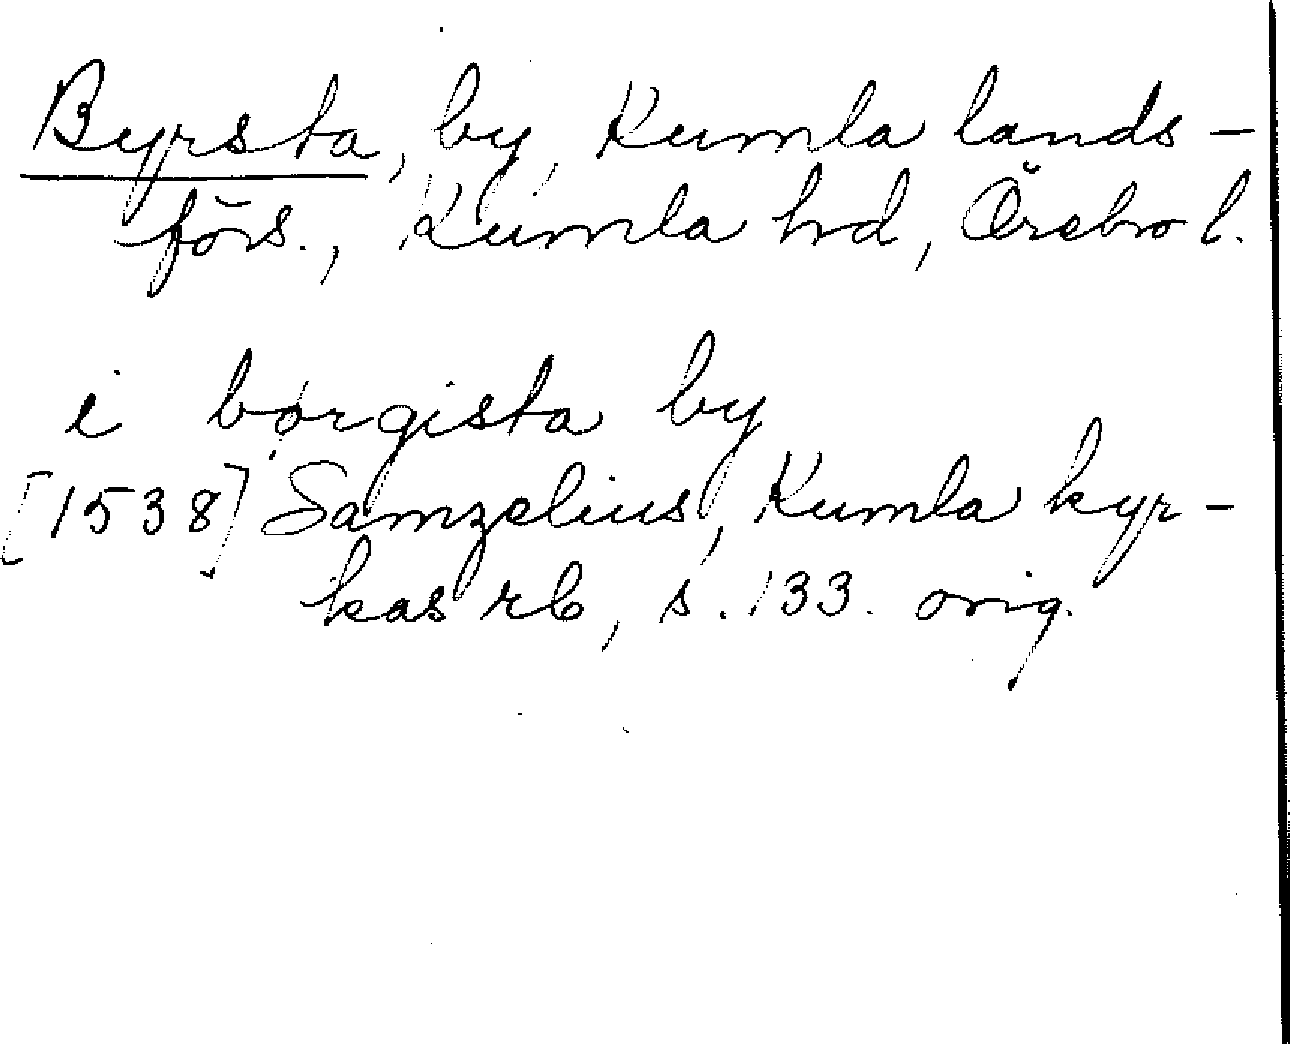 Byrsta, by, Kumla lands-
förs., Kumla hd, Örebro l.
i børgista by
[1538] Samzelius, Kumla kyr-
kas rb, s. 133. orig.